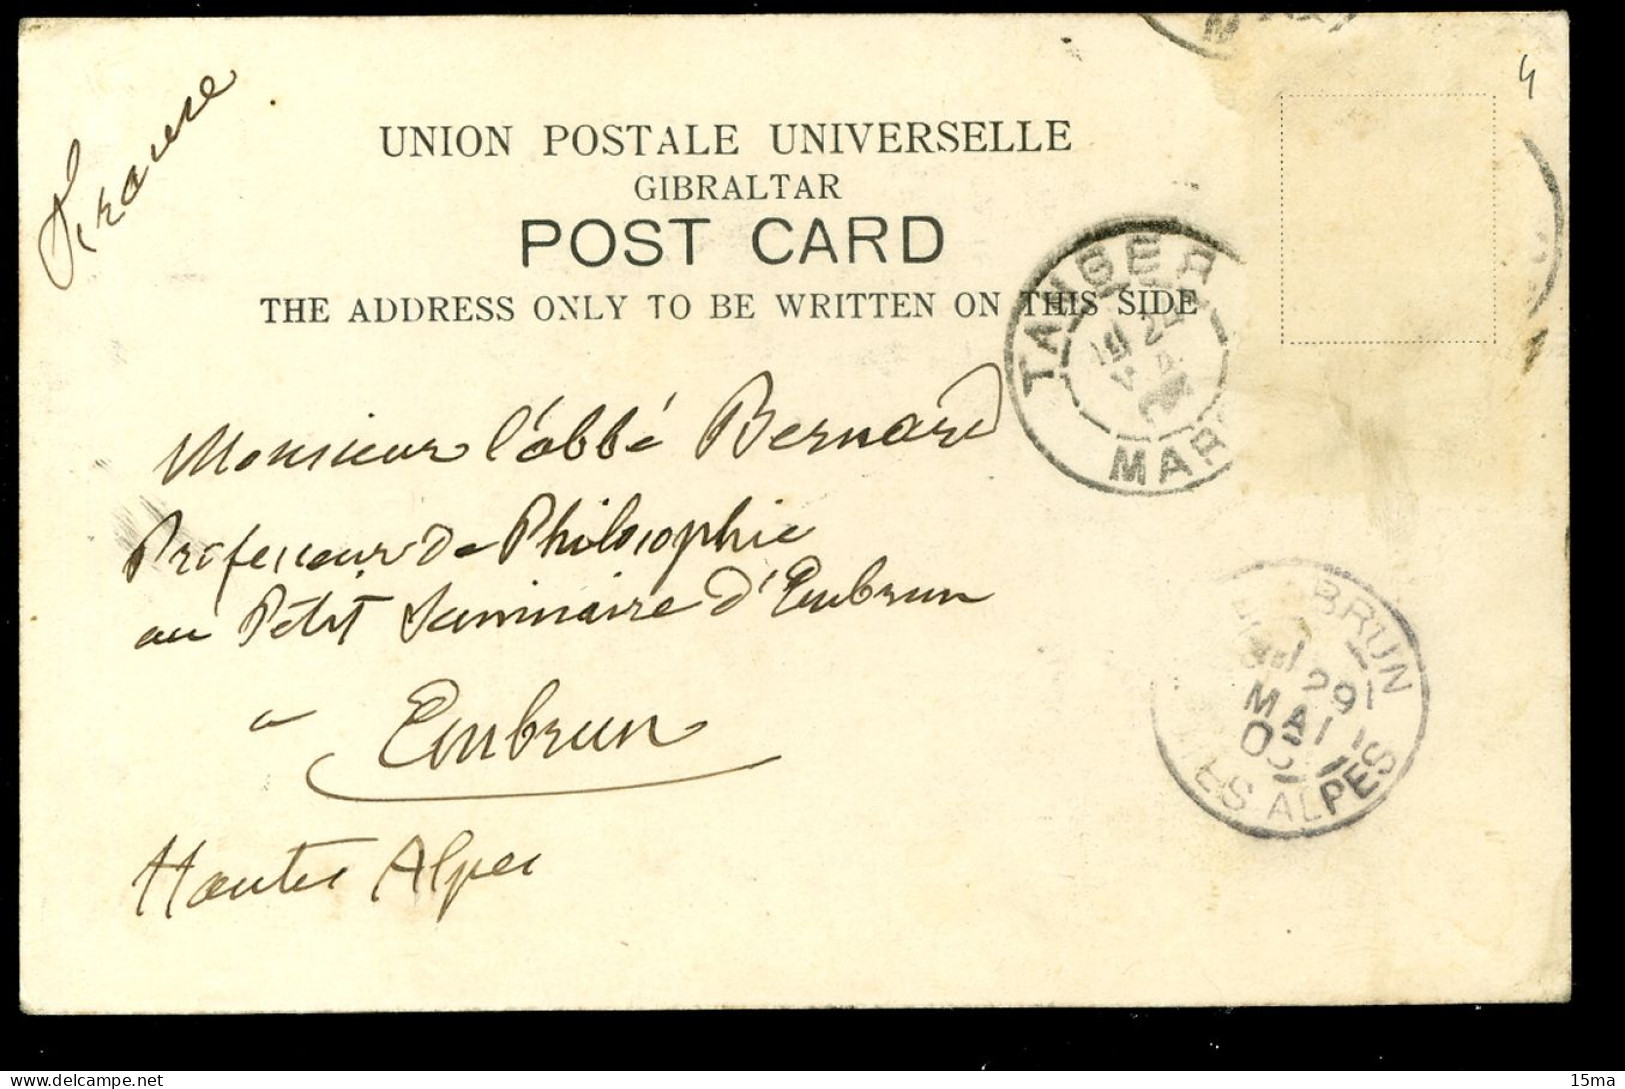 France
4
UNION POSTALE UNIVERSELLE
GIBRALTAR
POST CARD
THE ADDRESS ONLY TO BE WRITTEN ON THIS SIDE
TANGER
MAR
Monsieur l'abbé Bernard
Professeur de Philosophie
au Petit Seminaire d'Embrun
à Embrun
Hautes Alpes
BRUN
MAI
ES ALPES
15ma